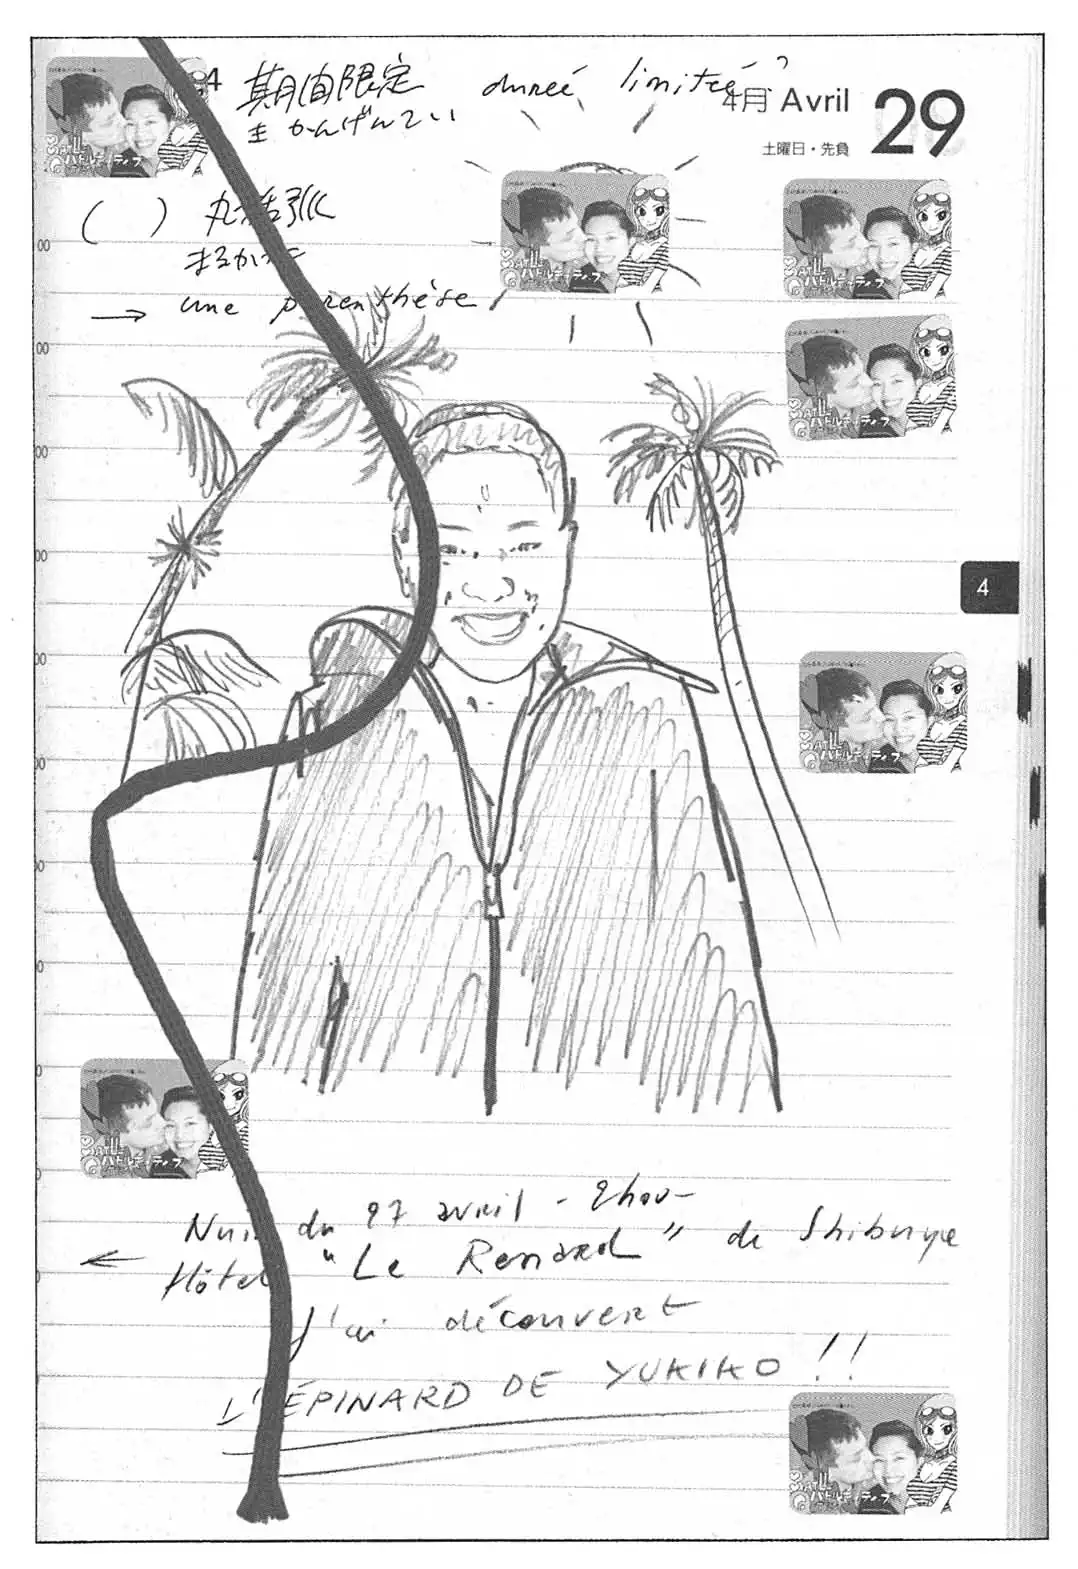 期間限定 durée limitée?
きかんげんてい
4月 Avril 29
土曜日・先負
( ) 丸括弧
まるかっこ
→ une parenthèse
4
Nuit du 27 avril - 2h00 -
← Hôtel "Le Renard" de Shibuya
J'ai découvert
L'ÉPINARD DE YUKIKO !!